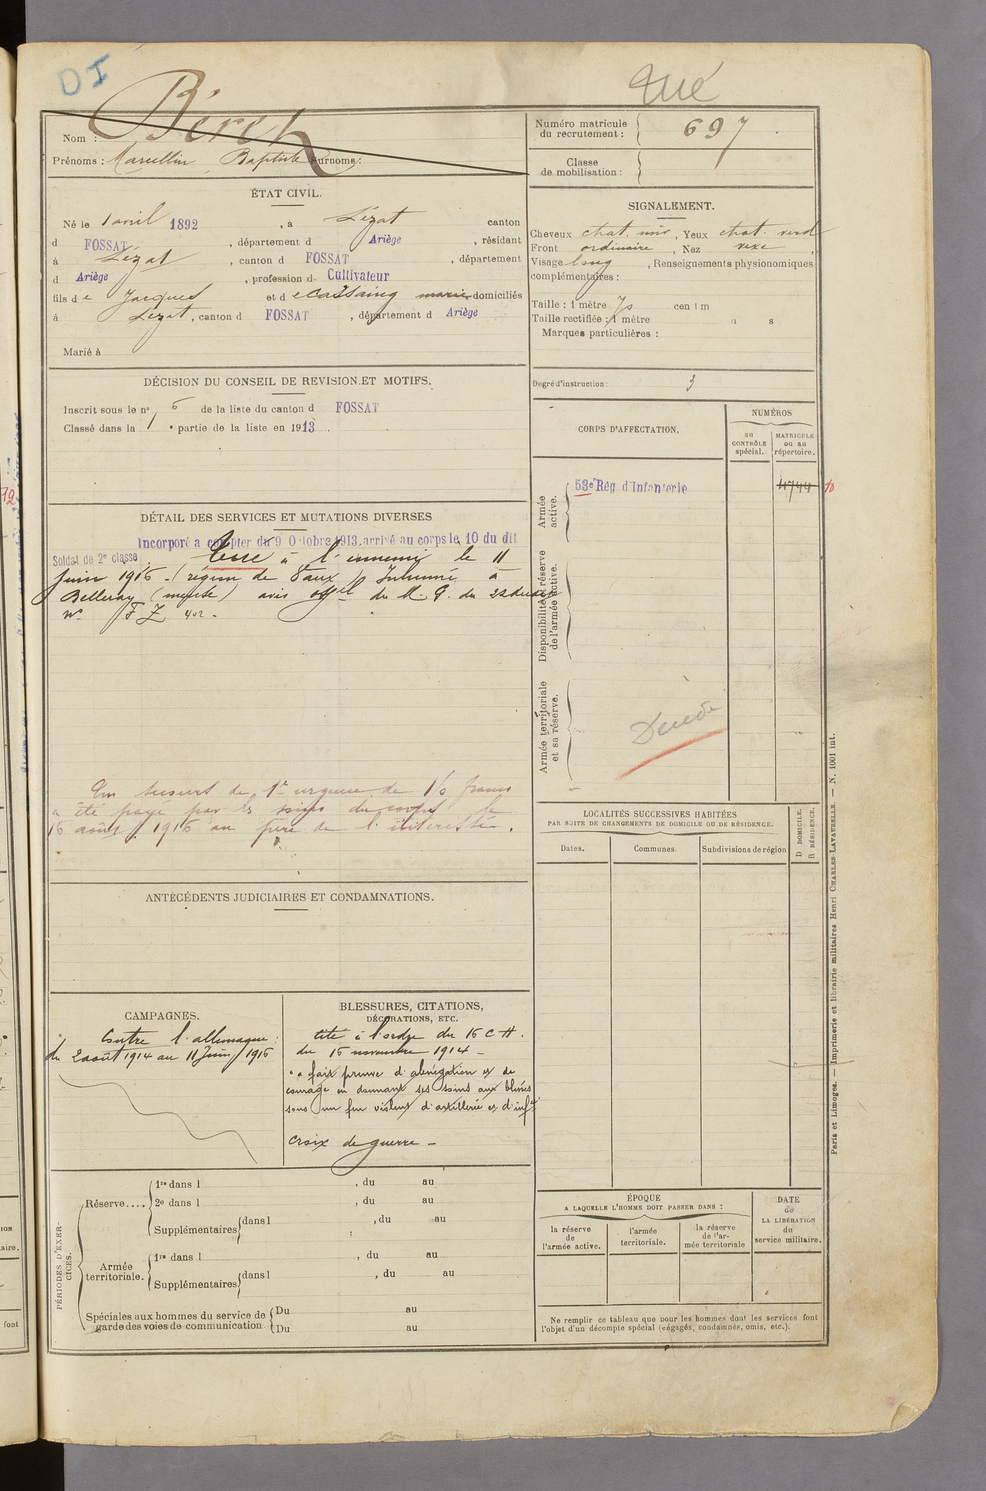 DI
tué
Nom : Béreh
Prénoms : Marcellin Baptiste Surnoms :
Numéro matricule du recrutement : 697
Classe de mobilisation :
ÉTAT CIVIL.
Né le 1 avril 1892, à Lézat canton
d FOSSAT, département d Ariège, résidant
à Lézat, canton d FOSSAT, département
d Ariège, profession d Cultivateur
fils de Jacques et d e Cassaing marie domiciliés
à Lézat, canton d FOSSAT, département d Ariège
Marié à
SIGNALEMENT.
Cheveux chat. noir, Yeux chat. verd
Front ordinaire, Nez vexe
Visage long, Renseignements physionomiques
complémentaires :
Taille : 1 mètre 70 centim
Taille rectifiée : 1 mètre
Marques particulières :
Degré d'instruction : 3
DÉCISION DU CONSEIL DE REVISION ET MOTIFS.
Inscrit sous le n° 6 de la liste du canton d FOSSAT
Classé dans la 1 e partie de la liste en 1913
CORPS D'AFFECTATION.
NUMÉROS
au contrôle spécial.
matricule ou au répertoire.
Armée active.
53e Rég d'Infanterie
4744
Disponibilité et réserve de l'armée active.
Armée territoriale et sa réserve.
Décédé
DÉTAIL DES SERVICES ET MUTATIONS DIVERSES
Incorporé a compter du 9 Octobre 1913, arrivé au corps le 10 du dit
Soldat de 2e classe. Tué à l'ennemi le 11
juin 1916 (région de Vaux) Inhumé à
Belleray (meuse) avis offel du M. G. du 22
n° F Z 402.
Un secours de 1re urgence de 150 francs
a été payé par les soins du corps le
16 août 1916 au père de l'intéressé.
LOCALITÉS SUCCESSIVES HABITÉES
PAR SUITE DE CHANGEMENTS DE DOMICILE OU DE RÉSIDENCE.
Dates.
Communes.
Subdivisions de région
D DOMICILE.
R RÉSIDENCE.
ANTÉCÉDENTS JUDICIAIRES ET CONDAMNATIONS.
CAMPAGNES.
Contre l'allemagne :
du 2 août 1914 au 11 Juin 1916
BLESSURES, CITATIONS,
DÉCORATIONS, ETC.
Cité à l'ordre du 16 C A.
du 16 novembre 1914 -
"a fait preuve d'abnégation et de
courage en donnant ses soins aux blessés
sous un feu violent d'artillerie et d'infie
croix de guerre -
PÉRIODES D'EXERCICES.
Réserve....
1re dans l , du au
2e dans l , du au
Supplémentaires dans l , du au
Armée territoriale.
1re dans l , du au
Supplémentaires dans l , du au
Spéciales aux hommes du service de
garde des voies de communication
Du au
Du au
ÉPOQUE
A LAQUELLE L'HOMME DOIT PASSER DANS :
la réserve de l'armée active.
l'armée territoriale.
la réserve de l'armée territoriale
DATE de LA LIBÉRATION du service militaire.
Ne remplir ce tableau que pour les hommes dont les services font
l'objet d'un décompte spécial (engagés, condamnés, omis, etc.).
Paris et Limoges. — Imprimerie et librairie militaires Henri CHARLES-LAVAUZELLE. — N. 1001 int.